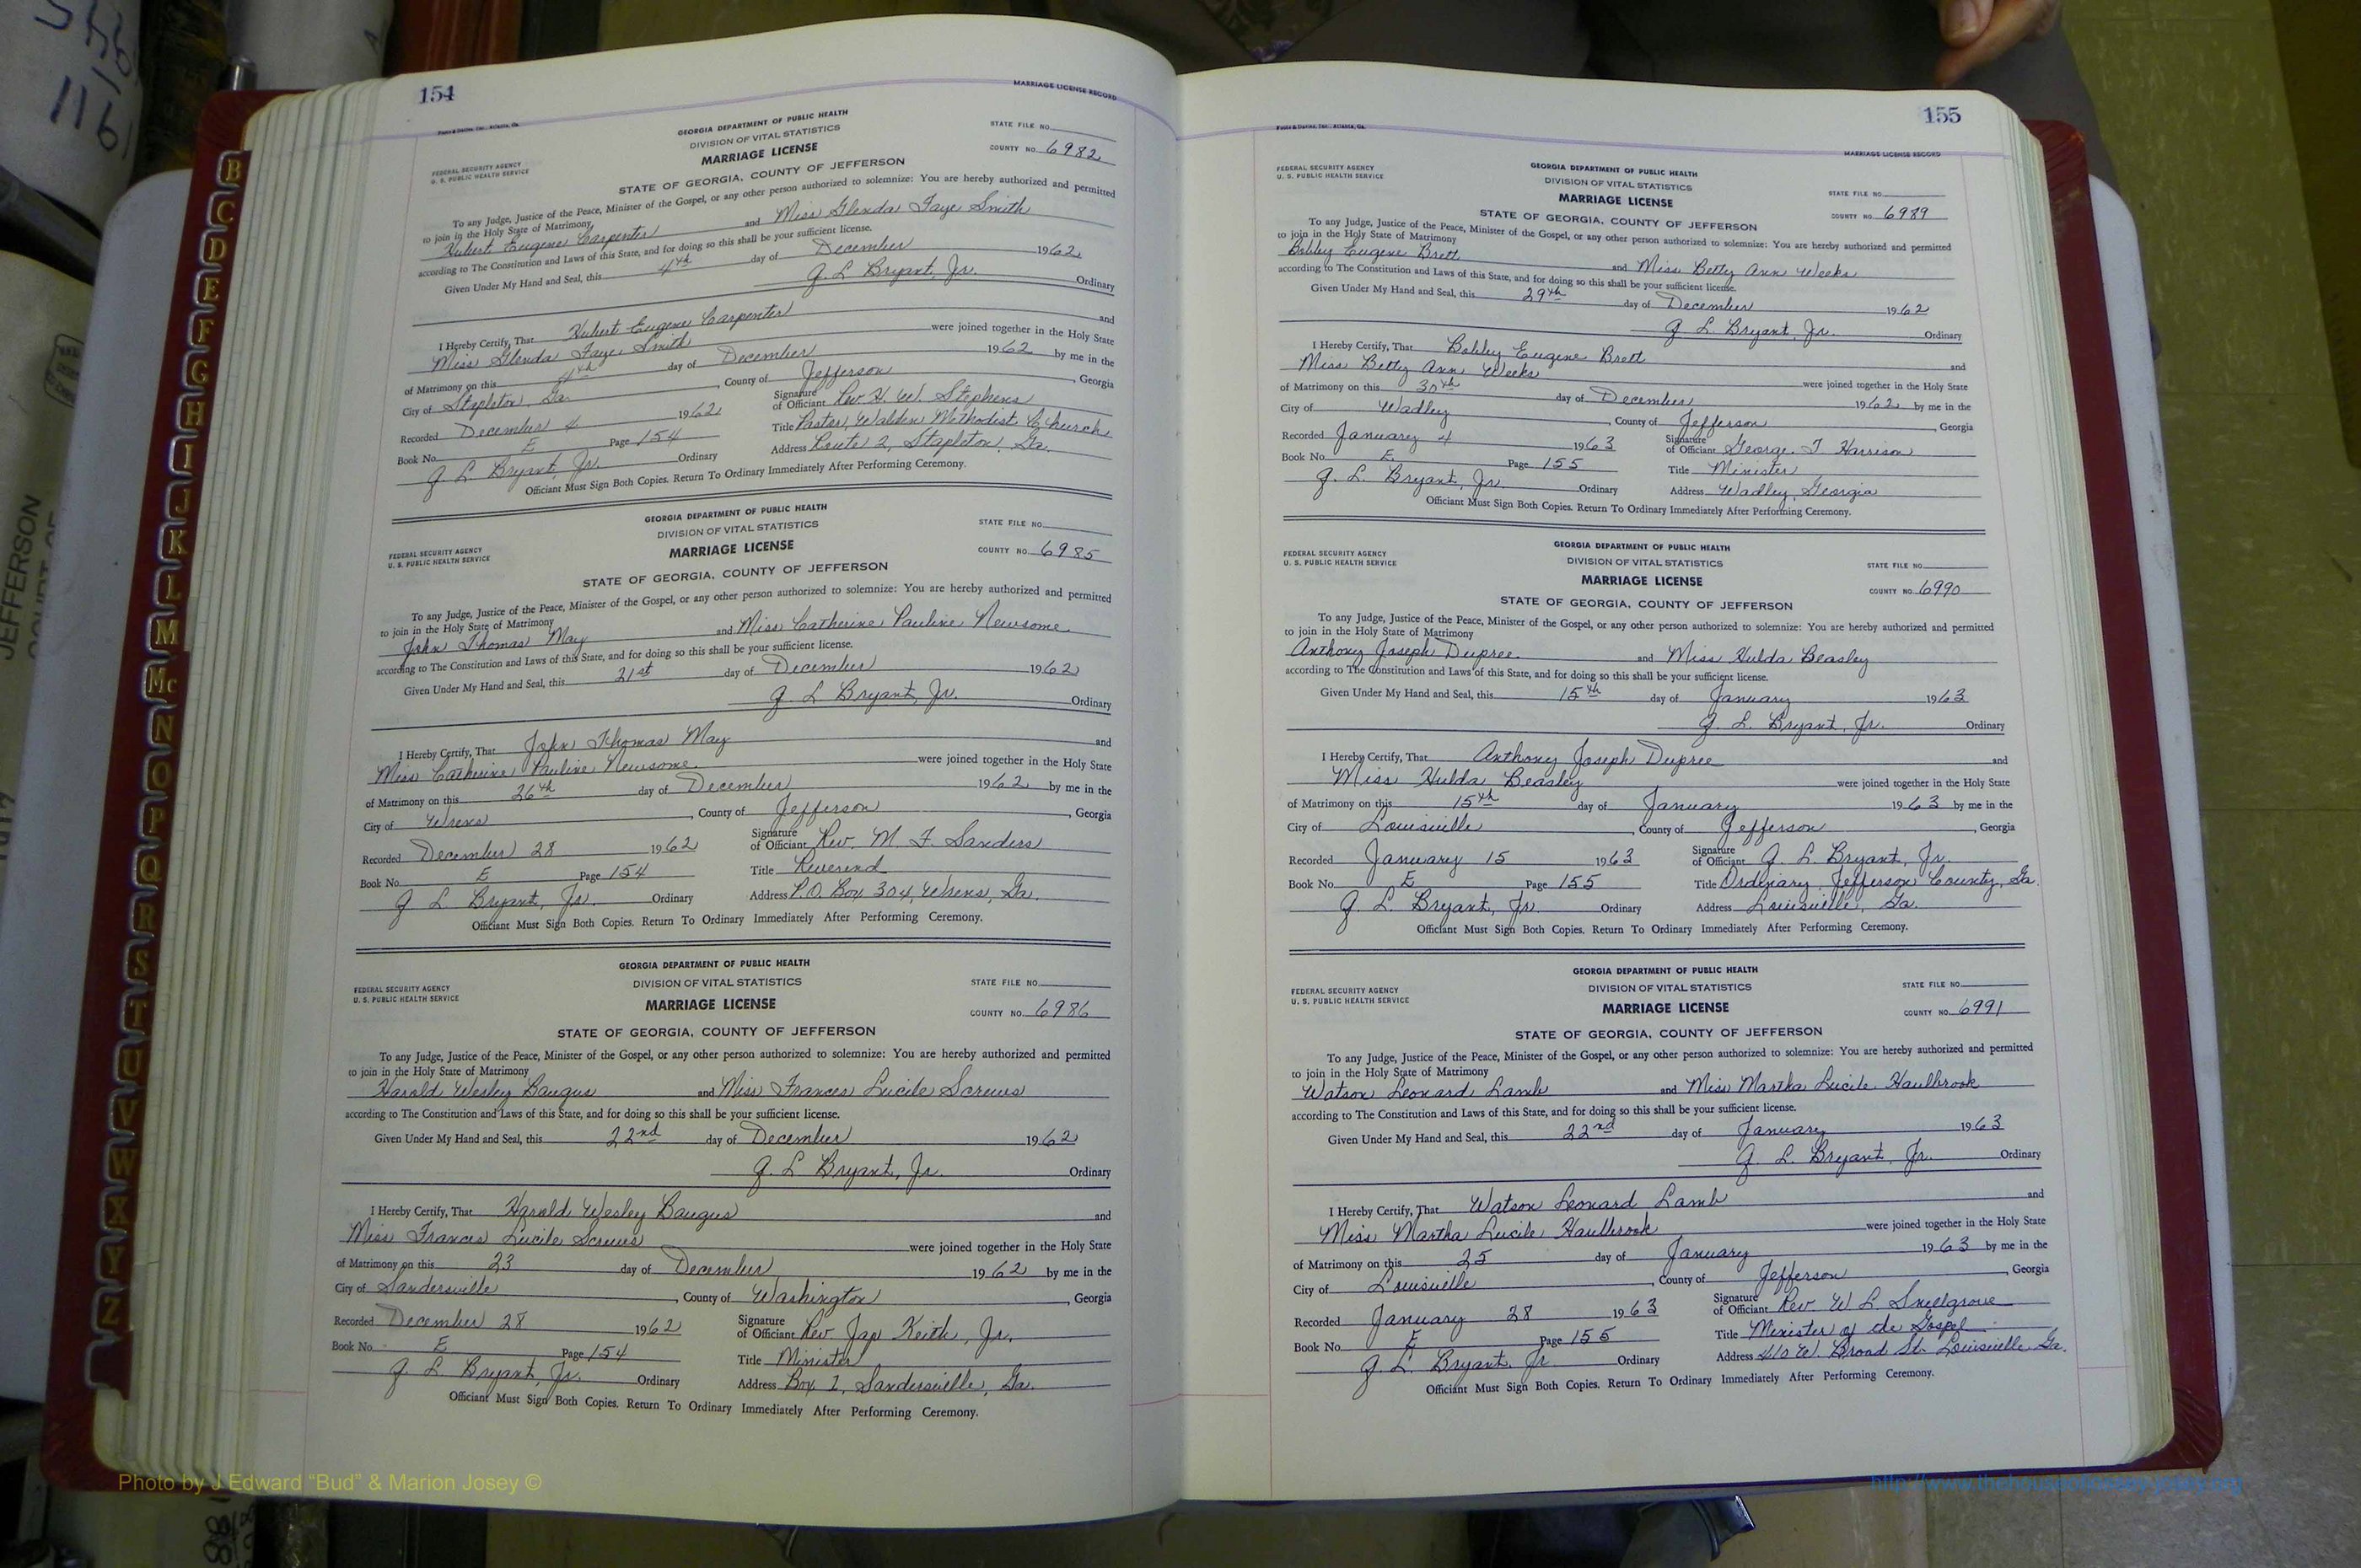 154
MARRIAGE LICENSE RECORD
GEORGIA DEPARTMENT OF PUBLIC HEALTH
DIVISION OF VITAL STATISTICS
MARRIAGE LICENSE
STATE OF GEORGIA, COUNTY OF JEFFERSON
FEDERAL SECURITY AGENCY
U. S. PUBLIC HEALTH SERVICE
STATE FILE NO.
COUNTY NO. 6982
To any Judge, Justice of the Peace, Minister of the Gospel, or any other person authorized to solemnize: You are hereby authorized and permitted
to join in the Holy State of Matrimony
Hubert Eugene Carpenter and Miss Glenda Faye Smith
according to The Constitution and Laws of this State, and for doing so this shall be your sufficient license.
Given Under My Hand and Seal, this 4th day of December 1962
G. L. Bryant, Jr. Ordinary
I Hereby Certify, That Hubert Eugene Carpenter and
Miss Glenda Faye Smith were joined together in the Holy State
of Matrimony on this 4th day of December 1962 by me in the
City of Stapleton, Ga. , County of Jefferson , Georgia
Recorded December 4 1962
Signature of Officiant Rev. H. W. Stephens
Book No. E Page 154
Title Pastor, Walden Methodist Church
G. L. Bryant, Jr. Ordinary
Address Route 2, Stapleton, Ga.
Officiant Must Sign Both Copies. Return To Ordinary Immediately After Performing Ceremony.
GEORGIA DEPARTMENT OF PUBLIC HEALTH
DIVISION OF VITAL STATISTICS
MARRIAGE LICENSE
STATE OF GEORGIA, COUNTY OF JEFFERSON
FEDERAL SECURITY AGENCY
U. S. PUBLIC HEALTH SERVICE
STATE FILE NO.
COUNTY NO. 6985
To any Judge, Justice of the Peace, Minister of the Gospel, or any other person authorized to solemnize: You are hereby authorized and permitted
to join in the Holy State of Matrimony
John Thomas May and Miss Catherine Pauline Newsome
according to The Constitution and Laws of this State, and for doing so this shall be your sufficient license.
Given Under My Hand and Seal, this 21st day of December 1962
G. L. Bryant, Jr. Ordinary
I Hereby Certify, That John Thomas May and
Miss Catherine Pauline Newsome were joined together in the Holy State
of Matrimony on this 26th day of December 1962 by me in the
City of Wrens , County of Jefferson , Georgia
Recorded December 28 1962
Signature of Officiant Rev. M. F. Sanders
Book No. E Page 154
Title Reverend
G. L. Bryant, Jr. Ordinary
Address P.O. Box 304, Wrens, Ga.
Officiant Must Sign Both Copies. Return To Ordinary Immediately After Performing Ceremony.
GEORGIA DEPARTMENT OF PUBLIC HEALTH
DIVISION OF VITAL STATISTICS
MARRIAGE LICENSE
STATE OF GEORGIA, COUNTY OF JEFFERSON
FEDERAL SECURITY AGENCY
U. S. PUBLIC HEALTH SERVICE
STATE FILE NO.
COUNTY NO. 6986
To any Judge, Justice of the Peace, Minister of the Gospel, or any other person authorized to solemnize: You are hereby authorized and permitted
to join in the Holy State of Matrimony
Harold Wesley Baugus and Miss Frances Lucile Screws
according to The Constitution and Laws of this State, and for doing so this shall be your sufficient license.
Given Under My Hand and Seal, this 22nd day of December 1962
G. L. Bryant, Jr. Ordinary
I Hereby Certify, That Harold Wesley Baugus and
Miss Frances Lucile Screws were joined together in the Holy State
of Matrimony on this 23 day of December 1962 by me in the
City of Sandersville , County of Washington , Georgia
Recorded December 28 1962
Signature of Officiant Rev Jap Keith, Jr.
Book No. E Page 154
Title Minister
G. L. Bryant, Jr. Ordinary
Address Box 1, Sandersville, Ga.
Officiant Must Sign Both Copies. Return To Ordinary Immediately After Performing Ceremony.
155
MARRIAGE LICENSE RECORD
GEORGIA DEPARTMENT OF PUBLIC HEALTH
DIVISION OF VITAL STATISTICS
MARRIAGE LICENSE
STATE OF GEORGIA, COUNTY OF JEFFERSON
FEDERAL SECURITY AGENCY
U. S. PUBLIC HEALTH SERVICE
STATE FILE NO.
COUNTY NO. 6989
To any Judge, Justice of the Peace, Minister of the Gospel, or any other person authorized to solemnize: You are hereby authorized and permitted
to join in the Holy State of Matrimony
Bobby Eugene Brett and Miss Betty Ann Weeks
according to The Constitution and Laws of this State, and for doing so this shall be your sufficient license.
Given Under My Hand and Seal, this 29th day of December 1962
G. L. Bryant, Jr. Ordinary
I Hereby Certify, That Bobby Eugene Brett and
Miss Betty Ann Weeks were joined together in the Holy State
of Matrimony on this 30th day of December 1962 by me in the
City of Wadley , County of Jefferson , Georgia
Recorded January 4 1963
Signature of Officiant George T Harrison
Book No. E Page 155
Title Minister
G. L. Bryant, Jr. Ordinary
Address Wadley, Georgia
Officiant Must Sign Both Copies. Return To Ordinary Immediately After Performing Ceremony.
GEORGIA DEPARTMENT OF PUBLIC HEALTH
DIVISION OF VITAL STATISTICS
MARRIAGE LICENSE
STATE OF GEORGIA, COUNTY OF JEFFERSON
FEDERAL SECURITY AGENCY
U. S. PUBLIC HEALTH SERVICE
STATE FILE NO.
COUNTY NO. 6990
To any Judge, Justice of the Peace, Minister of the Gospel, or any other person authorized to solemnize: You are hereby authorized and permitted
to join in the Holy State of Matrimony
Anthony Joseph Dupree and Miss Hulda Beasley
according to The Constitution and Laws of this State, and for doing so this shall be your sufficient license.
Given Under My Hand and Seal, this 15th day of January 1963
G. L. Bryant, Jr. Ordinary
I Hereby Certify, That Anthony Joseph Dupree and
Miss Hulda Beasley were joined together in the Holy State
of Matrimony on this 15th day of January 1963 by me in the
City of Louisville , County of Jefferson , Georgia
Recorded January 15 1963
Signature of Officiant G. L. Bryant, Jr.
Book No. E Page 155
Title Ordinary, Jefferson County, Ga.
G. L. Bryant, Jr. Ordinary
Address Louisville, Ga.
Officiant Must Sign Both Copies. Return To Ordinary Immediately After Performing Ceremony.
GEORGIA DEPARTMENT OF PUBLIC HEALTH
DIVISION OF VITAL STATISTICS
MARRIAGE LICENSE
STATE OF GEORGIA, COUNTY OF JEFFERSON
FEDERAL SECURITY AGENCY
U. S. PUBLIC HEALTH SERVICE
STATE FILE NO.
COUNTY NO. 6991
To any Judge, Justice of the Peace, Minister of the Gospel, or any other person authorized to solemnize: You are hereby authorized and permitted
to join in the Holy State of Matrimony
Watson Leonard Lamb and Miss Martha Lucile Haulbrook
according to The Constitution and Laws of this State, and for doing so this shall be your sufficient license.
Given Under My Hand and Seal, this 22nd day of January 1963
G. L. Bryant, Jr. Ordinary
I Hereby Certify, That Watson Leonard Lamb and
Miss Martha Lucile Haulbrook were joined together in the Holy State
of Matrimony on this 25 day of January 1963 by me in the
City of Louisville , County of Jefferson , Georgia
Recorded January 28 1963
Signature of Officiant Rev. W L Snellgrove
Book No. E Page 155
Title Minister of the Gospel
G. L. Bryant, Jr. Ordinary
Address 410 W. Broad St. Louisville, Ga.
Officiant Must Sign Both Copies. Return To Ordinary Immediately After Performing Ceremony.
B
C
D
E
F
G
H
I
J
K
L
M
Mc
N
O
P
Q
R
S
T
U
V
W
X
Y
Z
JEFFERSON
Photo by J Edward “Bud” & Marion Josey ©